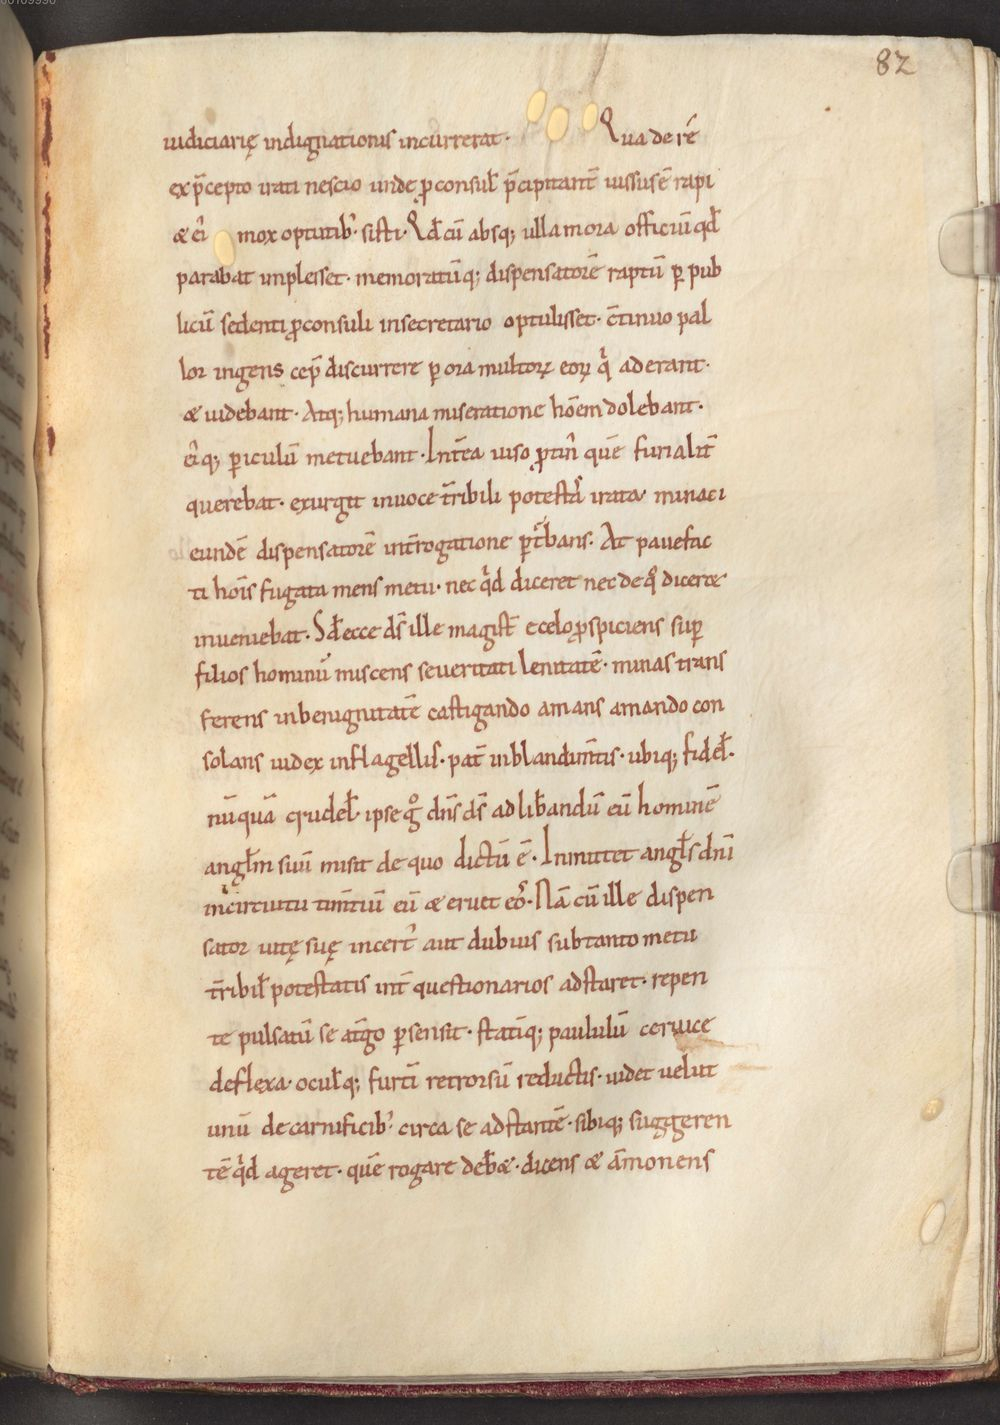 82
iudiciarię indignationis incurrerat· Qua de rē
ex p̄cepto irati nescio unde ꝓconsuł p̄cipitant̄ iussus ē rapi
& ei᷒ mox optutib᷒ sisti· Qđ cū absq; ulla mora officiū qđ
parabat implesset· memoratūq; dispensatorē raptū ꝑ pub
licū sedenti ꝓconsuli insecretario optulisset· c̄tinuo pal
lor ingens cep̄ discurrere ꝑ ora multoꝝ eoꝝ qͥ aderant·
& uidebant· Atq; humana miseratione hōem dolebant·
ei᷒q; ꝑiculū metuebant· Int̄ea uiso ꝓtin᷒ quē furialit̄
querebat· exurgit inuoce t̄ribili potestas irata minaci
eundē dispensatorē int̄rogatione ꝑt᷒bans· At pauefac
ti hoīs fugata mens metu· nec qͥd diceret nec de qͦ dicer&
inueniebat· Sđ ecce dš ille magist̄ ecelo ꝓspiciens suꝑ
filios hominū miscens seueritati lenitatē· minas trans
ferens inbenignitatē castigando amans amando con
solans iudex inflagellis· pat̄ inblandim̄tis· ubiq; fideł·
nūquā crudeł· ipse gͦ dn̄s dš ad lib̄andū eū hominē
angłm suū misit de quo dictū ē· Inmittet angłs dn̄i
incircuitu tim̄tiū eū & eruet eos᷒· Nā cū ille dispen
sator uitę suę incert᷒ aut dubius sub tanto metu
t̄ribił potestatis int̄ questionarios adstaret· repen
te pulsatū se at̄go ꝑsensit· statīq; paululū ceruice
deflexa· oculisq; furtī retrorsū reductis· uidet uelut
unū de carnificib᷒ circa se adstantē· sibiq; suggeren
tē qͥd ageret· quē rogare deb&· dicens & am̄onens